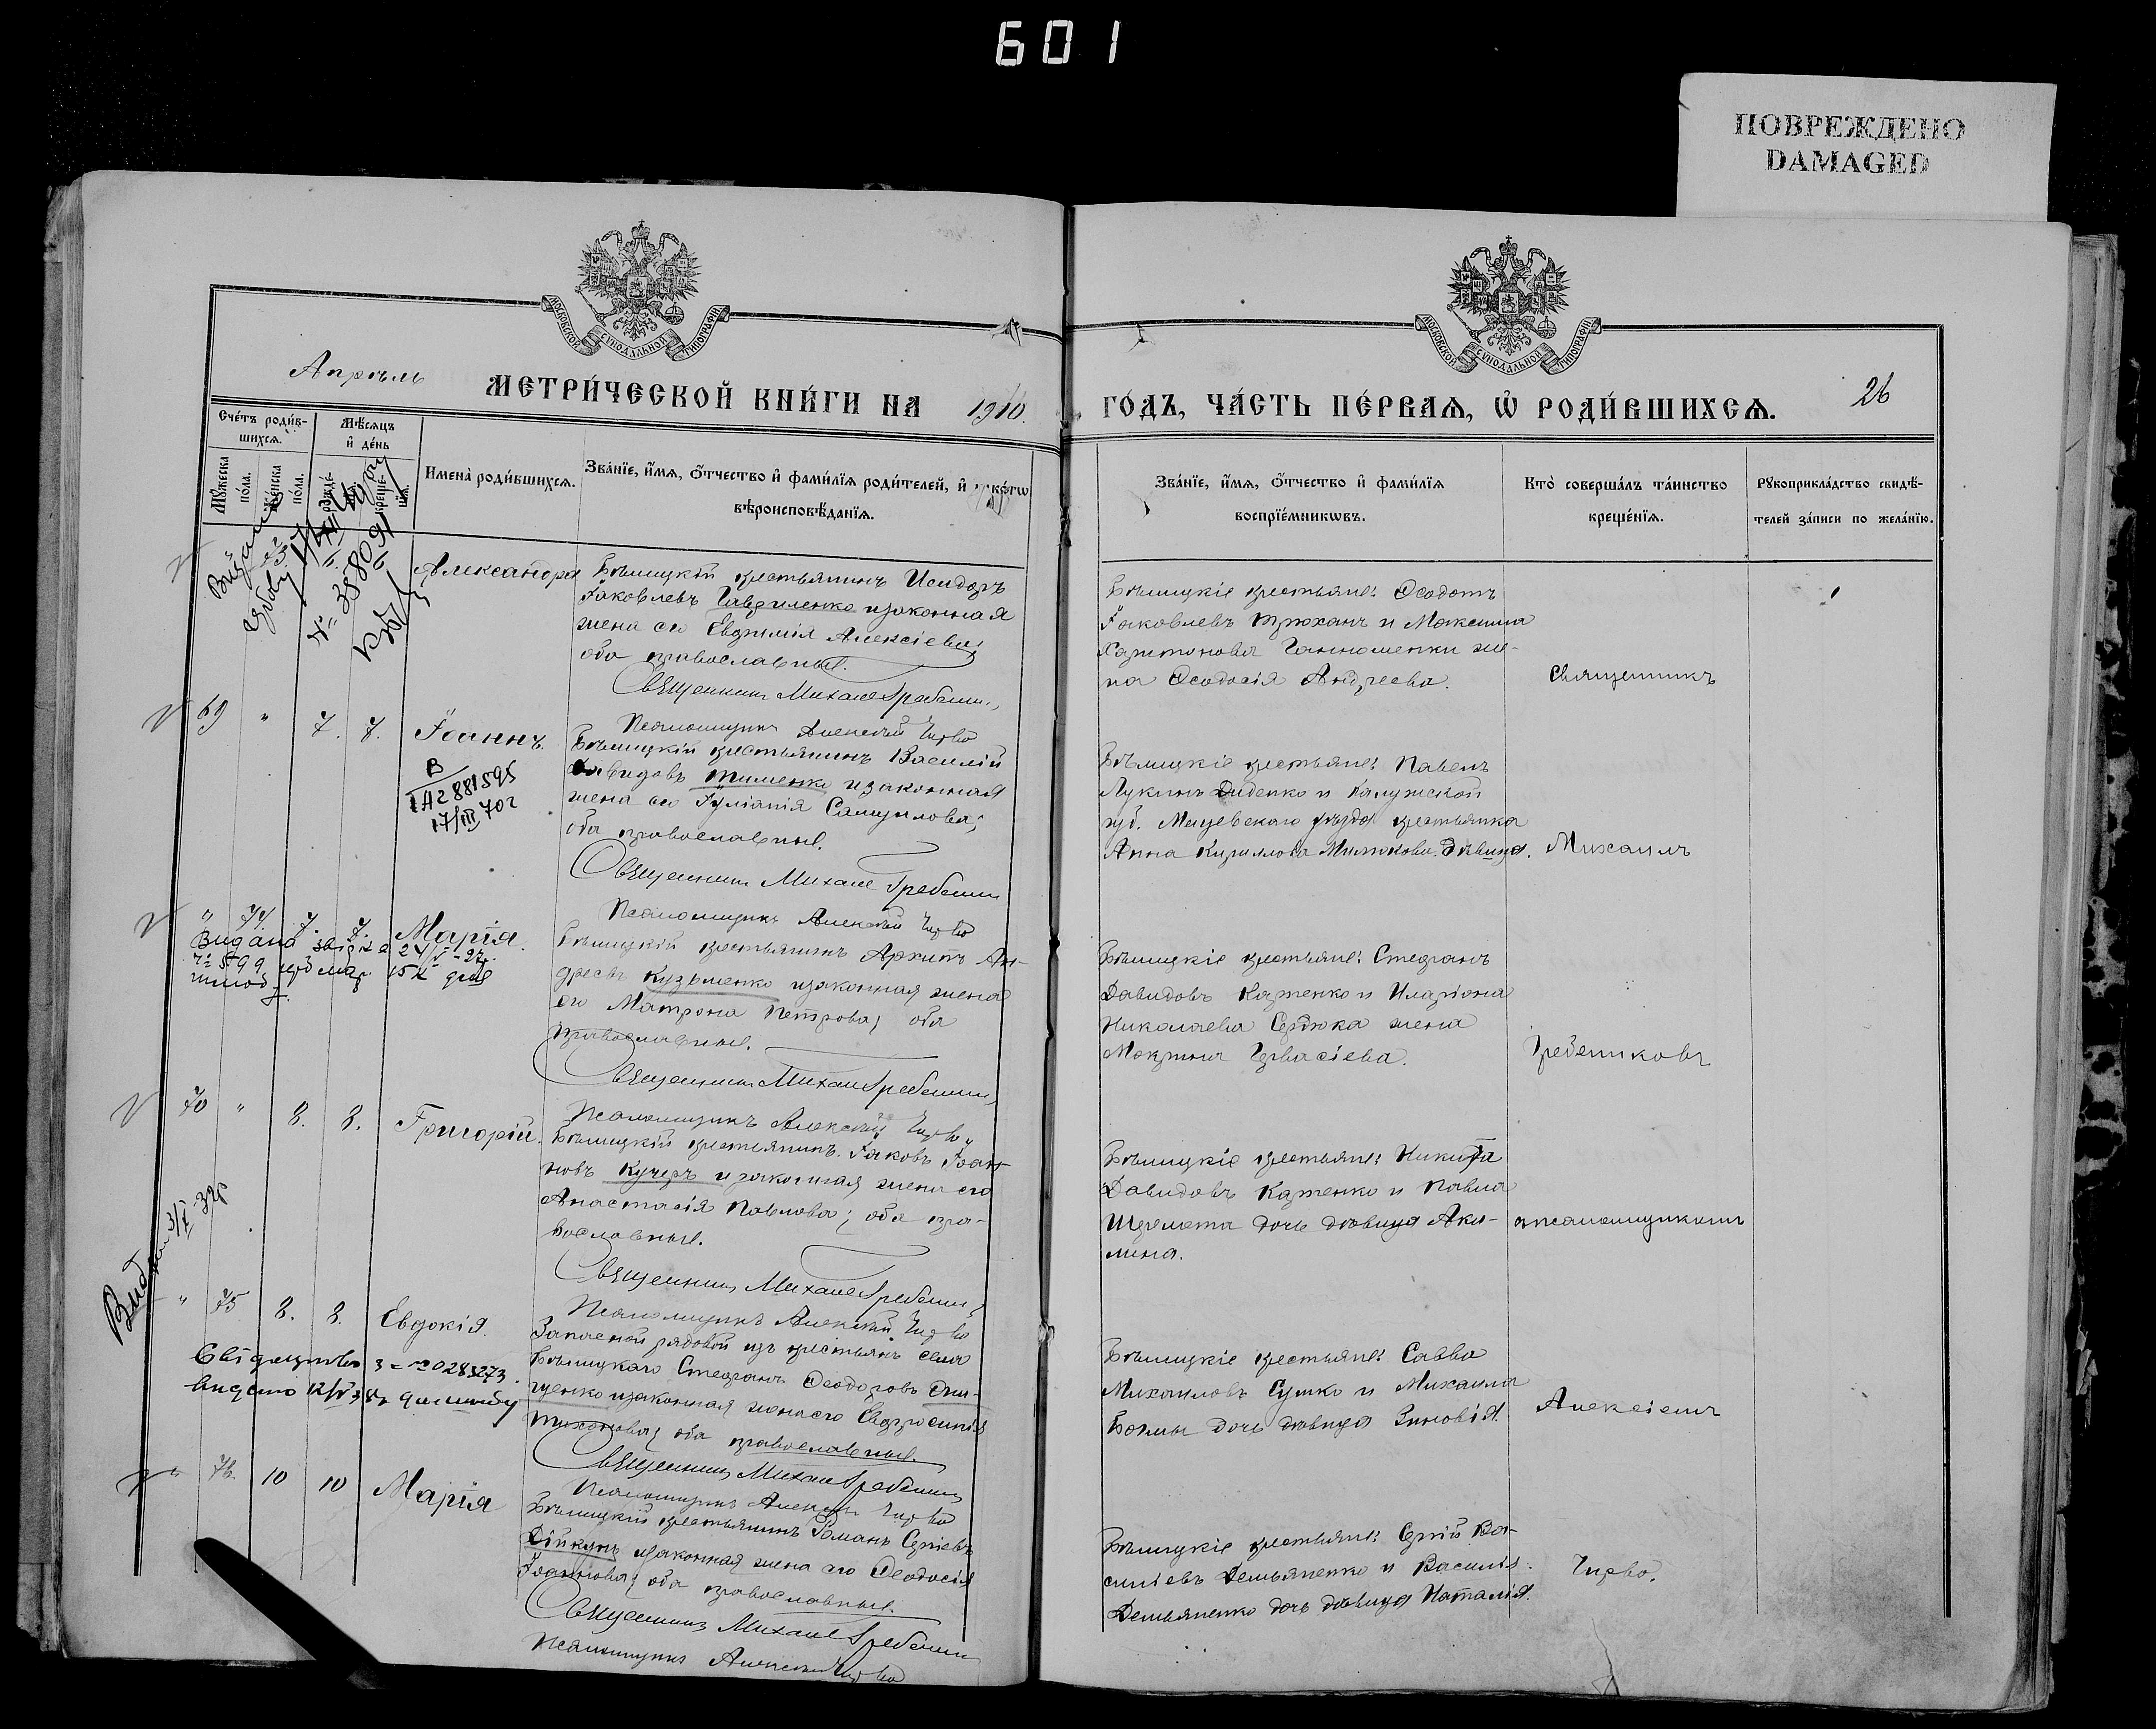 601
ПОВРЕЖДЕНО
DAMAGED
МОСКОВСКОЙ СУНОДАЛЬНОЙ ТИПОГРАФІИ
МОСКОВСКОЙ СУНОДАЛЬНОЙ ТИПОГРАФІИ
Апрѣль
МЕТРИ́ЧЕСКОЙ КНИ́ГИ НА 1910.
ГО́ДЪ, ЧА́СТЬ ПЕ́РВАѦ, Ѡ҆ РОДИ́ВШИХСѦ.
26
Сче́тъ роди́в-
шихсѧ.
Мѣ́сѧцъ
и҆ де́нь
Мꙋ́жеска
по́ла.
Же́нска
по́ла.
креще-
нїѧ.
Имена̀ роди́вшихсѧ.
Зва́нїе, и҆́мѧ, ѻ҆́тчество и҆ фами́лїѧ роди́телей, и҆
вѣроисповѣ́данїѧ.
Зва́нїе, и҆́мѧ, ѻ҆́тчество и҆ фами́лїѧ
воспрїе́мникѡвъ.
Кто̀ соверша́лъ та́инство
креще́нїѧ.
Рꙋкоприкла́дство свидѣ́-
телей за́писи по жела́нїю.
Александра
Бѣлицкій крестьянинъ Исидоръ
Іаковлевъ Гавриленко и законная
жена его Евфимія Алексіева;
оба православные.
Священникъ Михаилъ Гребениковъ
Псаломщикъ Алексій Чирво
Бѣлицкіе крестьяне: Ѳеодотъ
Іаковлевъ Трюханъ и Максима
Харитонова Ганношенки же-
на Ѳеодосія Андреева.
Священникъ
69 " 7. 7. Іоаннъ.
Бѣлицкій крестьянинъ Василій
Давидовъ Тименко и законная
жена его Іуліанія Самуилова;
оба православные.
Священникъ Михаилъ Гребениковъ
Псаломщикъ Алексій Чирво
17/III 702
Бѣлицкіе крестьяне: Павелъ
Лукинъ Диденко и Калужской
губ. Мещевскаго уѣзда крестьянка
Анна Кириллова дѣвица.
Михаилъ
" 74 7. 7. Марія.
Бѣлицкій крестьянинъ Архипъ Ан-
дреевъ Кузьменко и законная жена
его Матрона Петрова; оба
православные.
Священникъ Михаилъ Гребениковъ
Псаломщикъ Алексій Чирво
Бѣлицкіе крестьяне: Стефанъ
Давидовъ Карпенко и Иларіона
Николаева Сердюка жена
Мокрина Гервасіева.
Гребениковъ
70 " 8. 8. Григорій.
Бѣлицкій крестьянинъ Іаковъ Іоан-
новъ Кучеръ и законная жена его
Анастасія Павлова; оба пра-
вославные.
Священникъ Михаилъ Гребениковъ
Псаломщикъ Алексій Чирво
Бѣлицкіе крестьяне: Никита
Давидовъ Карпенко и Павла
Шеремета дочь дѣвица Аки-
лина.
съ псаломщикомъ
" 75 8. 8. Евдокія.
Запасной рядовой изъ крестьянъ села
Бѣлицкаго Стефанъ Ѳеодоровъ Они-
щенко и законная жена его Евфросинія
Тихонова; оба православные.
Священникъ Михаилъ Гребениковъ
Псаломщикъ Алексій Чирво
Бѣлицкіе крестьяне: Савва
Михаиловъ Сушко и Михаила
дочь дѣвица Зиновія.
Алексіемъ
" 76. 10 10 Марія
Бѣлицкій крестьянинъ Романъ Сергіевъ
Дійкунъ и законная жена его Ѳеодосія
Іоаннова; оба православные.
Священникъ Михаилъ Гребениковъ
Псаломщикъ Алексій Чирво
Бѣлицкіе крестьяне: Сергій Ва-
силіевъ Демьяненко и Василія
Демьяненко дочь дѣвица Наталія.
Чирво.